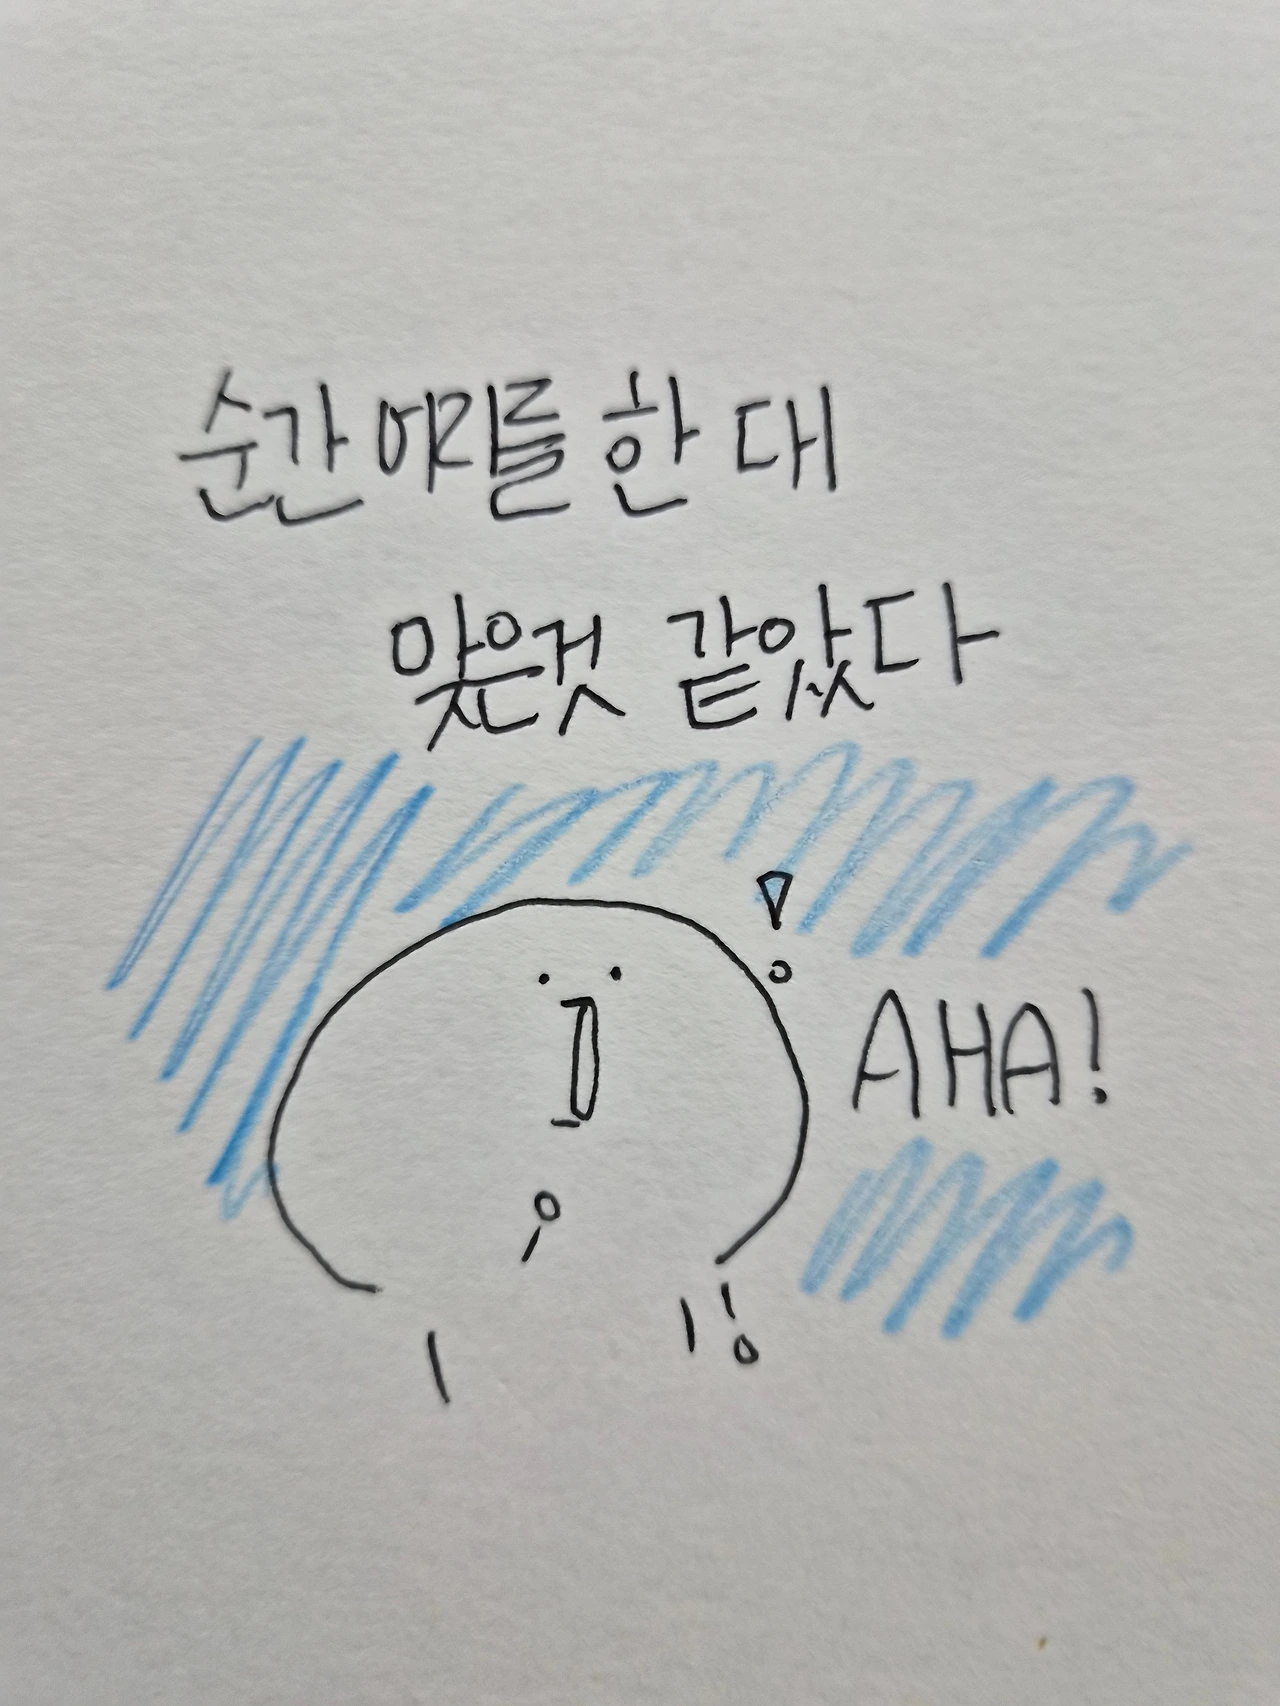 순간 머리를 한 대
맞은것 같았다
AHA!